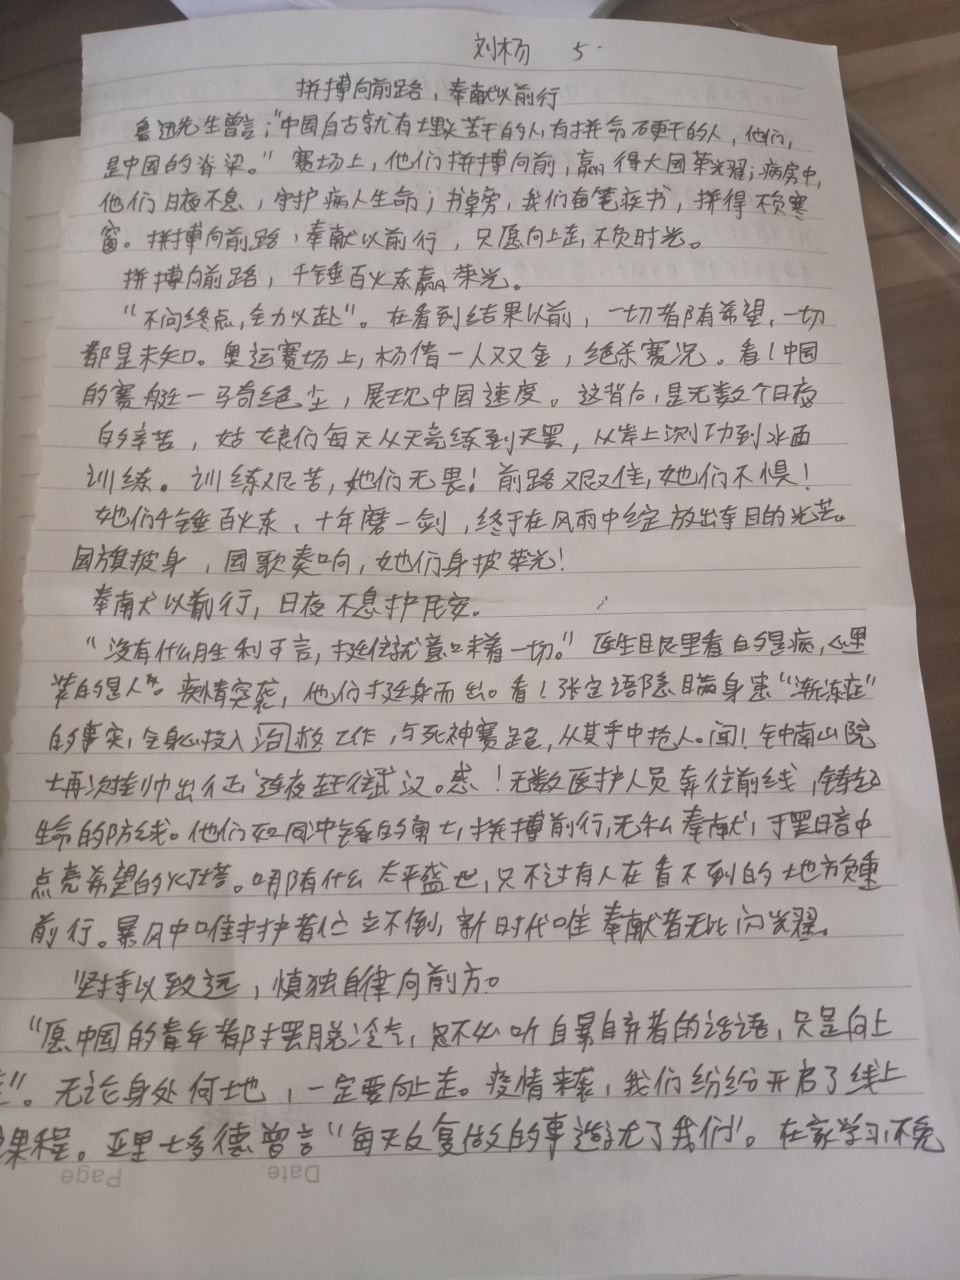 刘杨 5.
拼搏向前路，奉献以前行
鲁迅先生曾言："中国自古就有埋头苦干的人，有拼命硬干的人，他们，
是中国的脊梁。" 赛场上，他们拼搏向前，赢得大国荣光耀；病房中，
他们日夜不息，守护病人生命；书桌旁，我们奋笔疾书，拼得不负寒
窗。拼搏向前路，奉献以前行，只愿向上走，不负时光。
拼搏向前路，千锤百火东赢荣光。
"不问终点，全力以赴"。在看到结果以前，一切都有希望，一切
都是未知。奥运赛场上，杨倩一人双金，绝杀赛况。看！中国
的赛艇一马奇绝尘，展现中国速度。这背后，是无数个日夜
的辛苦，姑娘们每天从天亮练到天黑，从岸上测功到水面
训练。训练艰苦，她们无畏！前路艰难，她们不惧！
她们千锤百火东、十年磨一剑，终于在风雨中绽放出夺目的光芒。
国旗披身，国歌奏响，她们身披荣光！
奉献以前行，日夜不息护民安。
"没有什么胜利可言，挺住就意味着一切。" 医生眼里看的是病，心里
装的是人。疾情突袭，他们挺身而出。看！张定语隐瞒身患"渐冻症"
的事实，全身心投入治救工作，与死神赛跑，从其手中抢人。闻！钟南山院
士再次挂帅出征，连夜赶往武汉。感！无数医护人员奔往前线，铸起
生命的防线。他们如同冲锋的勇士，拼搏前行，无私奉献，于黑暗中
点亮希望的灯塔。哪有什么太平盛世，只不过有人在看不到的地方负重
前行。暴风中唯守护者屹立不倒，新时代唯奉献者无比闪光耀。
坚持以致远，慎独自律向前方。
"愿中国的青年都摆脱冷气，忽不必听自暴自弃者的话语，只是向上
走"。无论身处何地，一定要向上走。疫情来袭，我们纷纷开启了线上
课程。亚里士多德曾言"每天反复做的事造就了我们"。在家学习，不免
Date.
Page